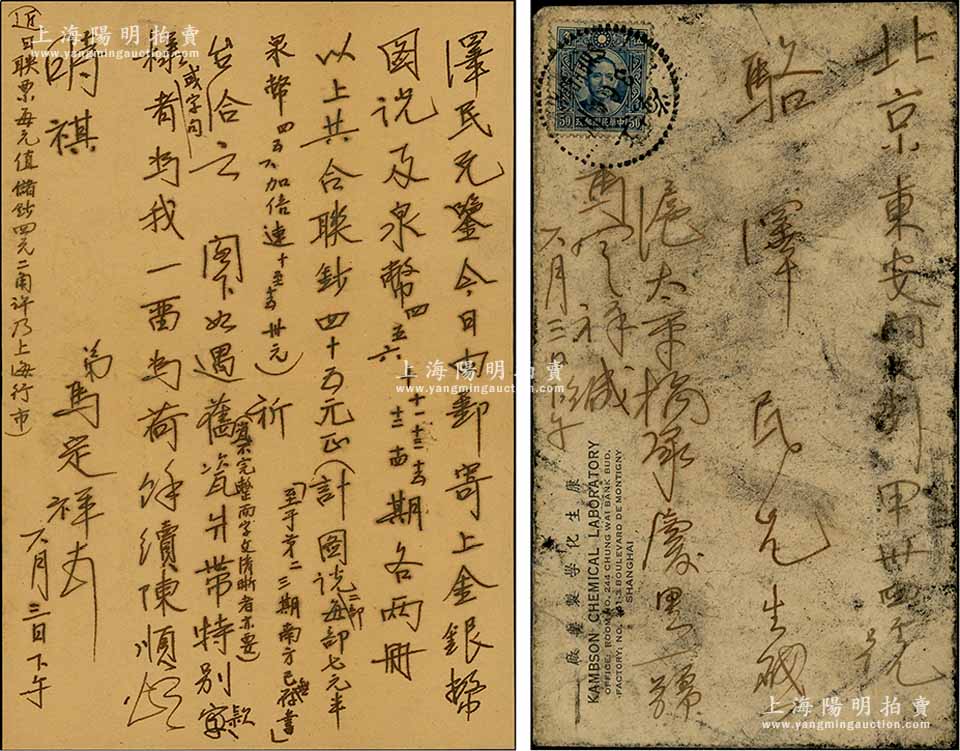 澤民兄鑒今日由郵寄上金銀幣
图说及泉幣四五六十一十二十三十五期各两冊
以上共合联鈔四十五元正(計图说二部每部七元半
泉幣四五六加倍連十至十五卅元)祈
「至于第二三期南方已存書」
台洽之 閣下如遇舊瓷片帶特别
實不完整而字文清晰者亦要
樣者或字句为我一留为荷餘續陳順頌
時祺
弟馬定祥
六月三日下午
近日联票每元值儲鈔四元二角许乃上海行市
上海陽明拍賣
www.yangmingauction.com
上海陽明拍賣
www.yangmingauction.com
北京東安門大街甲卅四號
駱澤民先生
滬太平橋承慶里一號
馬定祥緘
六月三日下午
50
50
康生化學製藥廠
KAMBSON CHEMICAL LABORATORY
OFFICE: ROOM NO. 244 CHUNG WAI BANK BUD.
FACTORY: NO. 281-3 BOULEVARD DE MONTIGNY
SHANGHAI
上海陽明拍賣
www.yangmingauction.com
上海陽明拍賣
www.yangmingauction.com